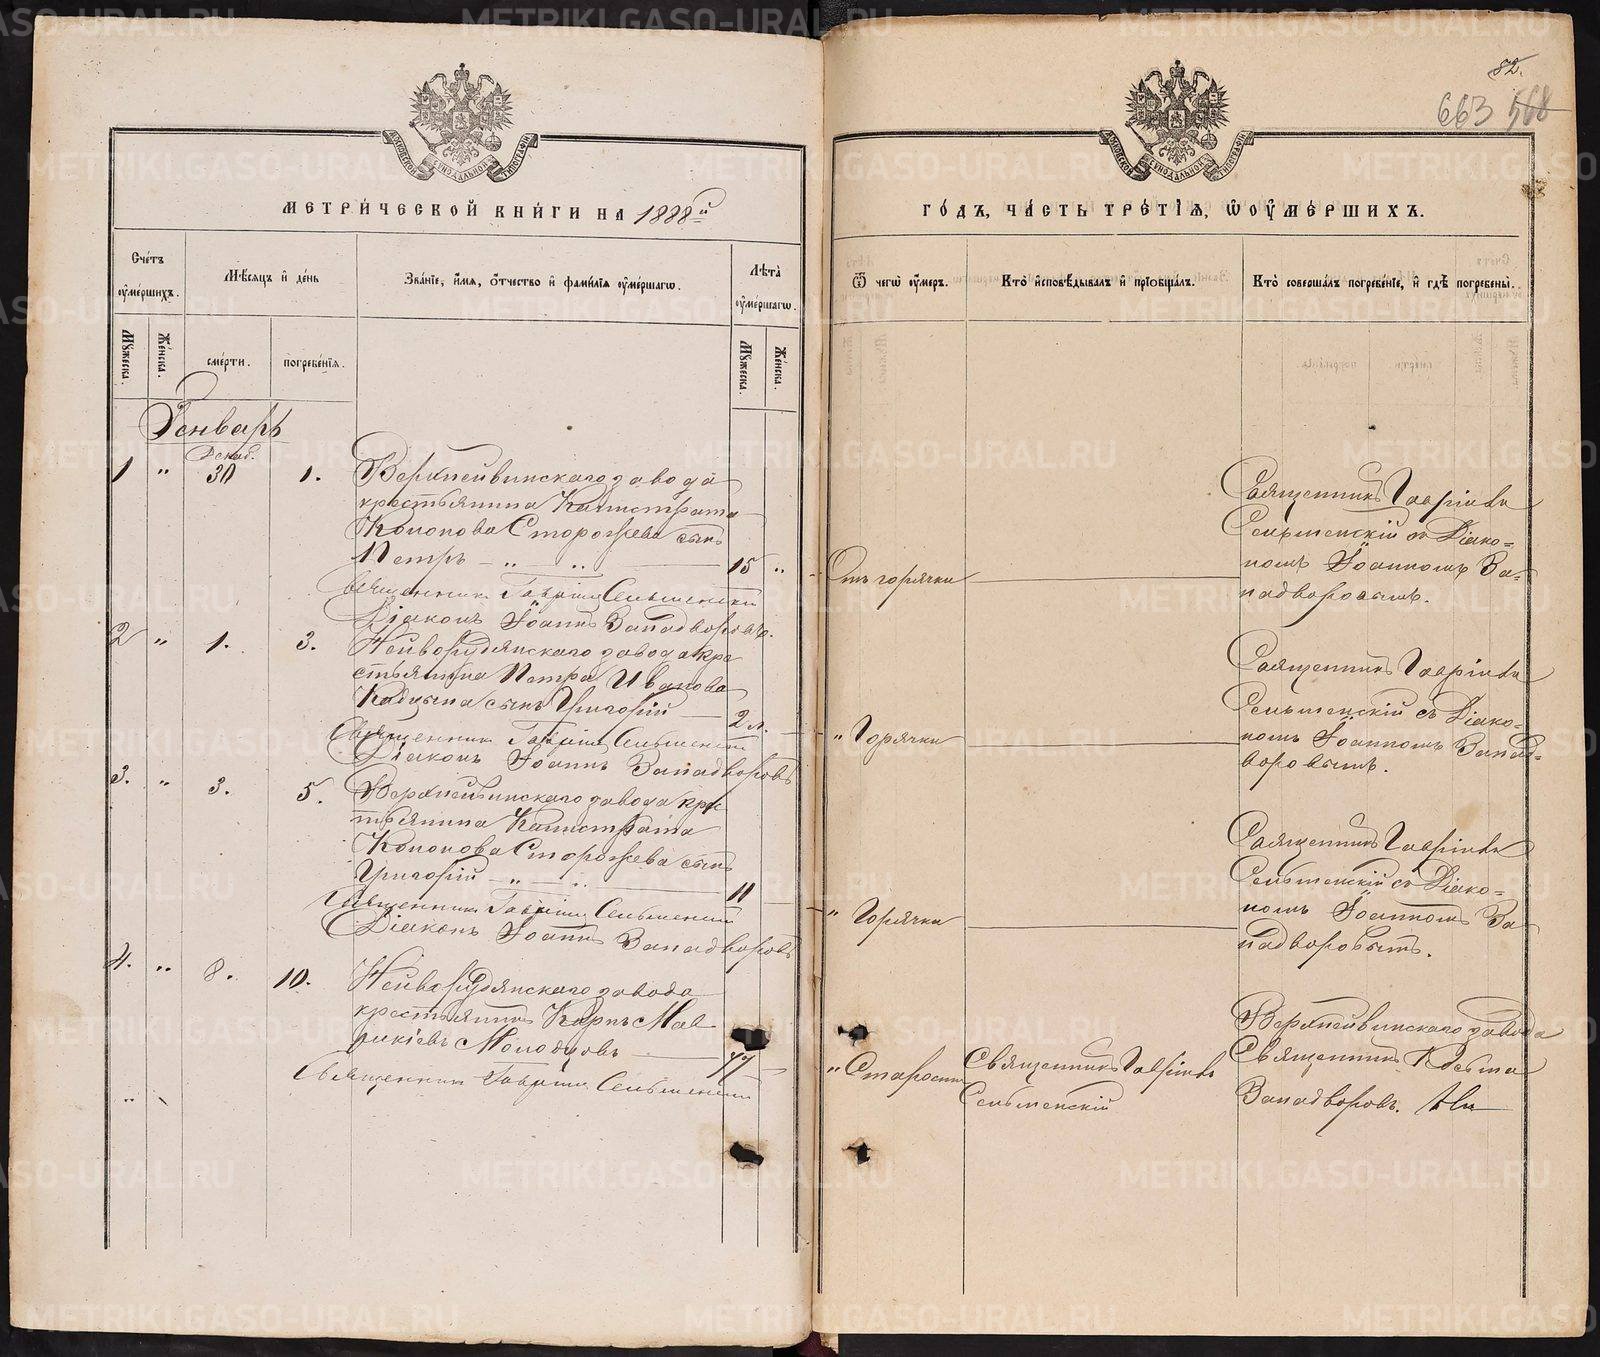 МЕТРИ́ЧЕСКОЙ КНИ́ГИ НА 1888й
Сче́тъ ᲂу҆ме́ршихъ.
Мѣ́сяцъ и҆ де́нь
Зва́нїе, и҆́мя, ѻ҆́тчество и҆ фами́лїя ᲂу҆ме́ршагѡ.
Лѣ́та ᲂу҆ме́ршагѡ.
Мꙋ́жеска.
Же́нска.
сме́рти.
погребе́нїя.
Мꙋ́жеска.
Же́нска.
Генварь
Декаб.
1 " 30 1. Верхнейвинскаго завода
крестьянина Каллистрата
Кононова Сторожева сынъ
Петръ 15 "
Священникъ Гавріилъ Сельменскій
Діаконъ Іоаннъ Западворовъ.
2 " 1. 3. Нейворудянскаго завода кре
стьянина Петра Иванова
сынъ Григорій 2 л.
Священникъ Гавріилъ Сельменскій
Діаконъ Іоаннъ Западворовъ
3. " 3. 5. Верхнейвинскаго завода кре
стьянина Каллистрата
Кононова Сторожева сынъ
Григорій 11
Священникъ Гавріилъ Сельменскій
Діаконъ Іоаннъ Западворовъ
4. " 8. 10. Нейворудянскаго завода
крестьянинъ Карпъ Мав
рикіевъ Молодцовъ 77
Священникъ Гавріилъ Сельменскій
82.
663 568
ГО́ДЪ, ЧА́СТЬ ТРЕ́ТЇЯ, Ѡ ОУМЕ́РШИХЪ.
Ѿ чегѡ̀ ᲂу҆́меръ.
Кто̀ и҆сповѣ́дывалъ и҆ прїѡбща́лъ.
Кто̀ соверша́лъ погребе́нїе, и҆ гдѣ̀ погребены̀.
Отъ горячки
Священникъ Гавріилъ
Сельменскій съ Діако=
номъ Іоанномъ За=
падворовымъ.
" Горячки
Священникъ Гавріилъ
Сельменскій съ Діако=
номъ Іоанномъ Запад=
воровымъ.
" Горячки
Священникъ Гавріилъ
Сельменскій съ Діако=
номъ Іоанномъ За
падворовымъ.
" Старости
Священникъ Гавріилъ
Сельменскій
Верхнейвинскаго завода
Священникъ Косьма
Западворовъ.
METRIKI.GASO-URAL.RU